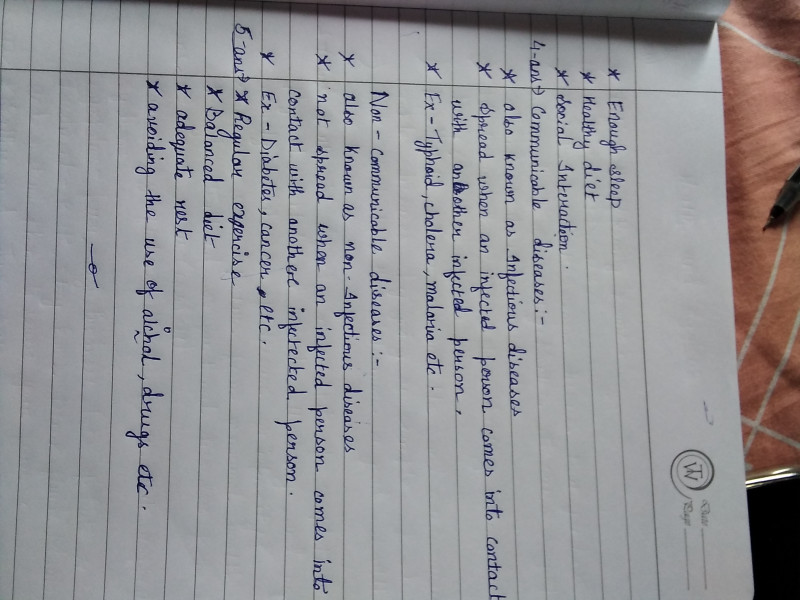 Date
Page
* Enough sleep
* Healthy diet
* Social Interaction.
4-ans→ Communicable diseases:-
* also known as Infectious diseases
* spread when an infected person comes into contact
with another infected person.
* Ex - Typhoid, cholera, malaria etc.
Non-Communicable diseases:-
* also known as non-Infectious diseases
* not spread when an infected person comes into
contact with another infetecked person.
* Ex - Diabetes, cancer, etc.
5-ans→ * Regular exercise
* Balanced diet
* adequate rest
* avoiding the use of alcohol, drugs etc.